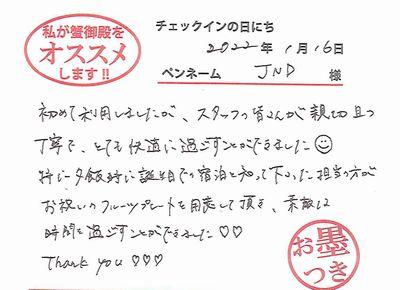 私が蟹御殿を
オススメ
します!!
チェックインの日にち
2022年 1月16日
ペンネーム JND 様
初めて利用しましたが、スタッフの皆さんが親切且つ
丁寧で、とても快適に過ごすことができました☺
特に夕飯時に誕生日での宿泊と知って下さった担当の方が
お祝いのフルーツプレートを用意して頂き、素敵な
時間を過ごすことができました♡♡
Thank you ♡♡♡
お墨つき